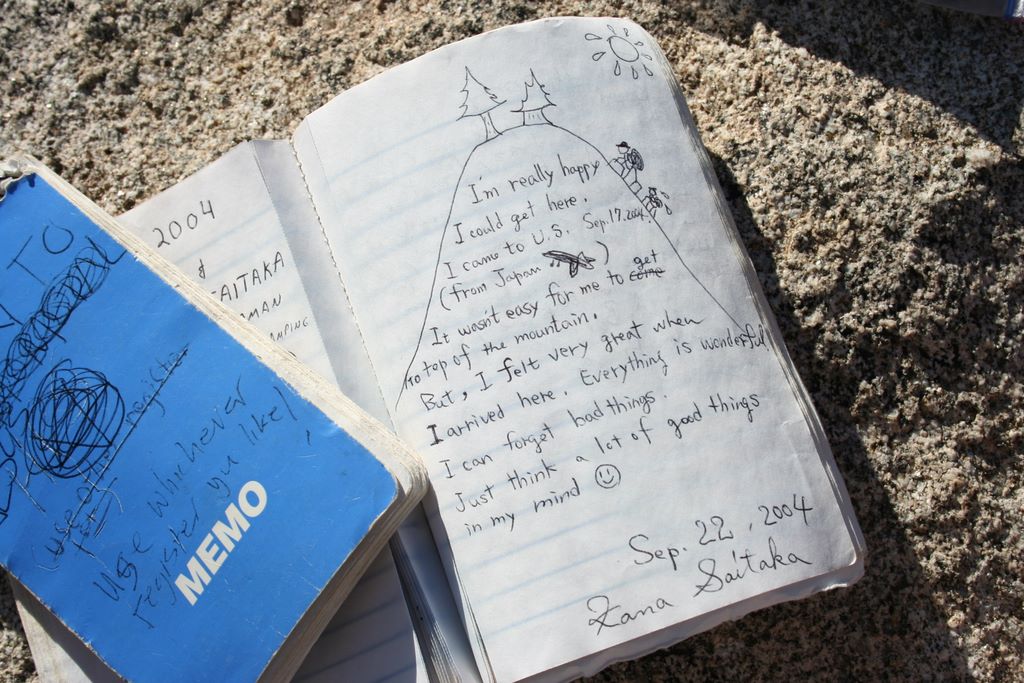 TO
use whichever
register you like!
MEMO
2004
SAITAKA
I'm really happy
I could get here.
I came to U.S. Sep.17.2004
(from Japan )
It wasn't easy for me to come get
to top of the mountain.
But, I felt very great when
I arrived here. Everything is wonderful
I can forget bad things.
Just think a lot of good things
in my mind
Sep. 22, 2004
Zana Saitaka